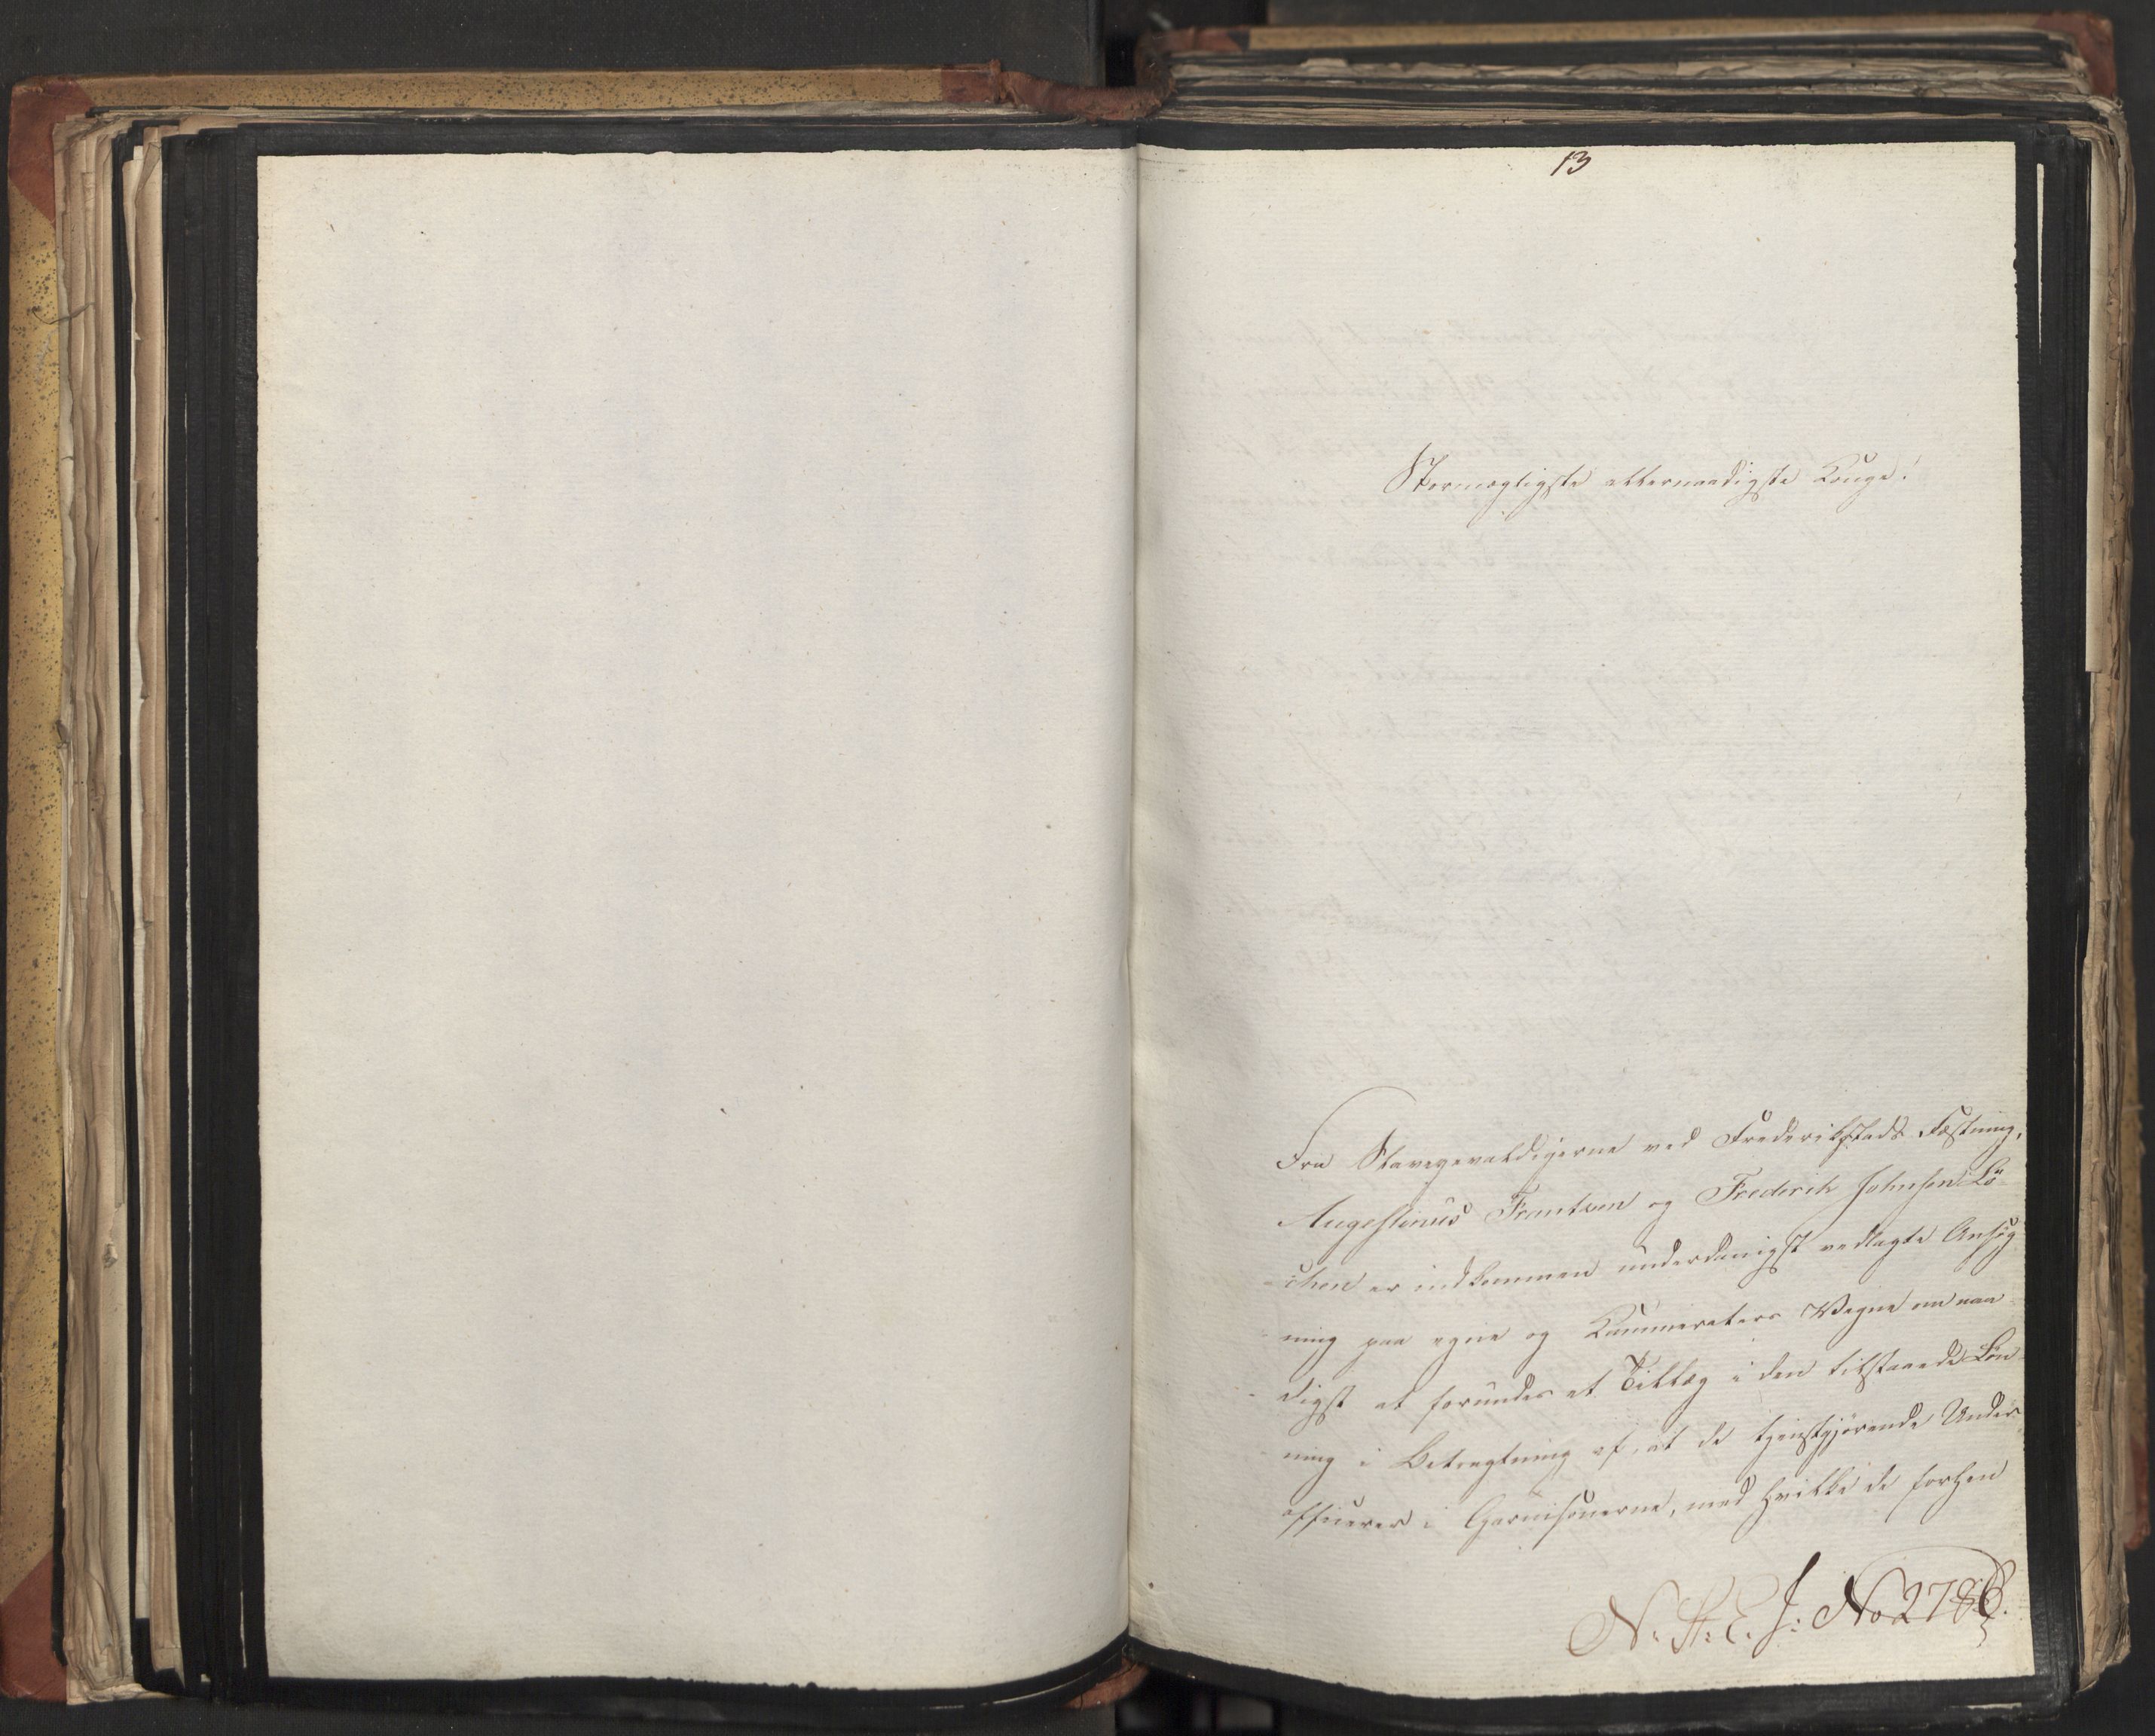 13
Stormægtigste allernaadigste Konge!
Fra Slavegevaldigerne ved Frederikstads Fæstning,
Augestinus Frantzen og Frederik Johnsen Lö-
chen er indkommen underdanigst vedlagte Ansøg-
ning paa egne og Kammeraters Vegne om naa-
digst at forundes et Tillæg i den tilstaaede Løn-
ning i Betragtning af, at de tjenstgjørende Under-
officerer i Garnisonerne, med hvilke de forhen
N. St. E. J: No 2786.